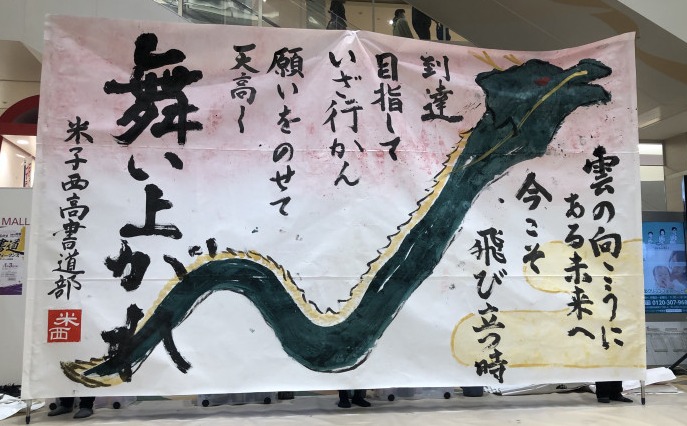 雲の向こうに
ある未来へ
今こそ
飛び立つ時
到達
目指して
いざ行かん
願いをのせて
天高く
舞い上がれ
米子西高書道部
米西
MALL
0120-307-96